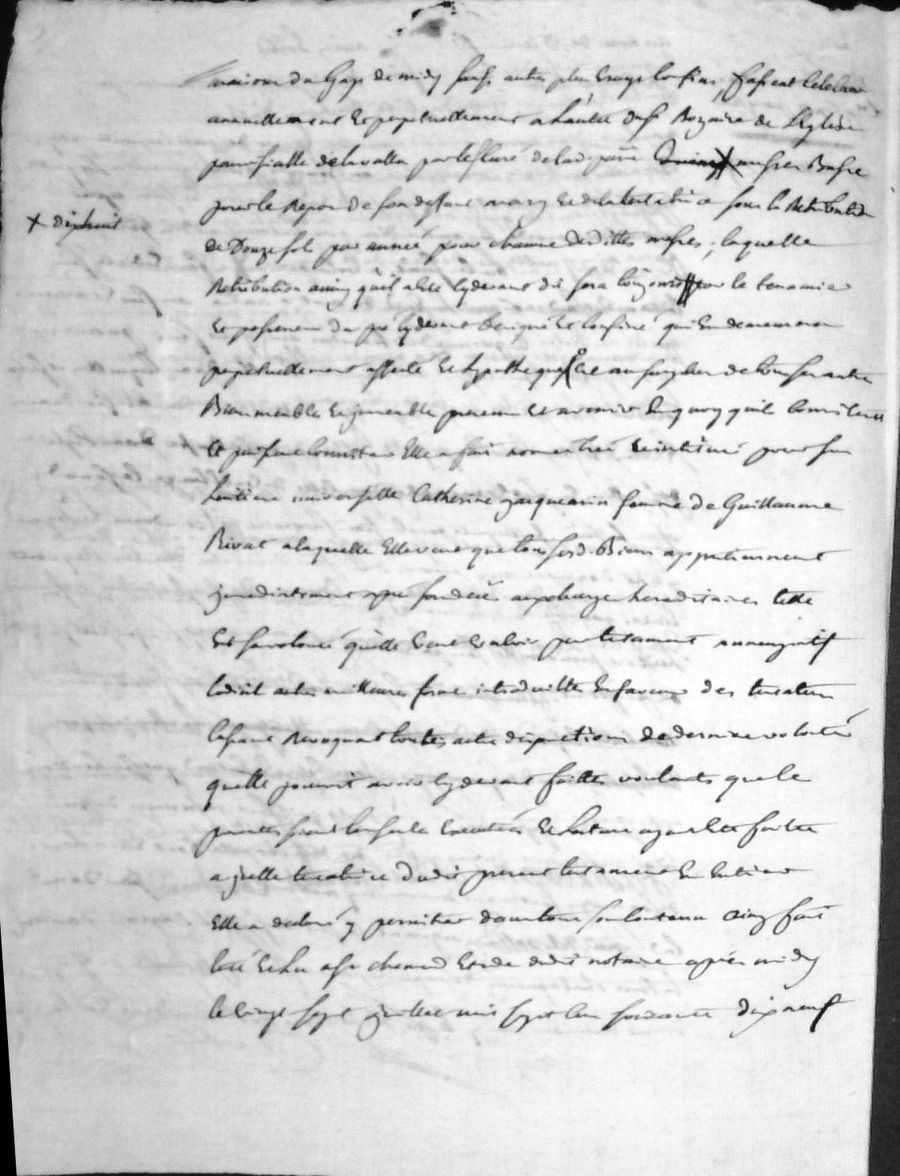 du Gap de midy sauf autres plus vrays confins,
annuellement et perpetuellement a l'autel du St Rozaire de l'eglise
parroissialle de lavalla par le Sr curé de lad. parre messes basse
pour le repos de son deffunt mary et de la testatrice sous la retribution
x dixhuit
de Douze sols par année pour chacune desdittes messes, laquelle
Retribution ainsy qu'il a été cydevant dit sera toujours par le tenancier
et possesseur du pré cydevant designé et confiné qui en demeurera
perpetuellement affecté et hypothequé au surplus de tous ses autres
Biens meuble et immeuble present et avenir En quoy qu'ils consistent
et puissent consister Elle a fait nommé et institué pour son
heritiere universelle Catherine jacquemin femme de Guillaume
Rivat a laquelle Elle veut que tous sesd. Biens appartiennent
apres son decès aux charges hereditaires telle
Est sa volonté qu'elle veut valoir par testament nuncupatif
codicil autre meilleure forme introduitte En faveur des testateurs
Revoquant toutes autre dispositions de derniere volonté
quelle pourroit avoir cydevant faittes voulant que le
present soit Executées Et lecture ayant eté faitte
a jcelle testatrice dudit present testament En Entier
Elle a declaré y persister dans tout son contenu ainsy fait
leü et de dudit notaire après midy
le vingt sept juillet mil sept cent soixante dix neuf